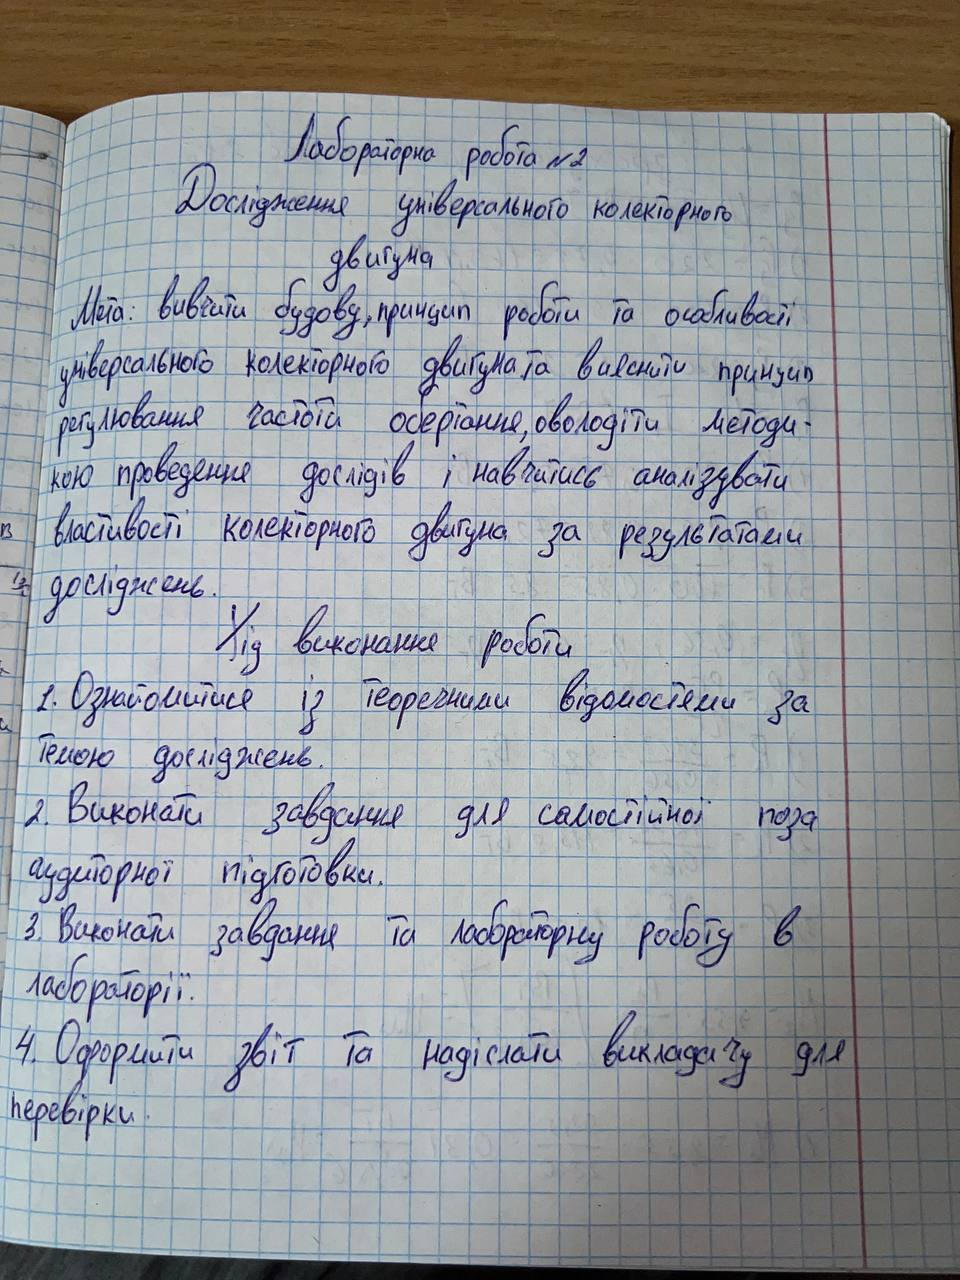 Лабораторна робота №2
Дослідження універсального колекторного
двигуна
Мета: вивчити будову, принцип роботи та особливості
універсального колекторного двигуна та вияснити принцип
регулювання частоти обертання, оволодіти методи-
кою проведення дослідів і навчитись аналізувати
властивості колекторного двигуна за результатами
досліджень.
Хід виконання роботи
1. Ознайомитися із теоречними відомостями за
темою досліджень.
2. Виконати завдання для самостійної поза
аудиторної підготовки.
3. Виконати завдання та лабораторну роботу в
лабораторії.
4. Оформити звіт та надіслати викладачу для
перевірки.